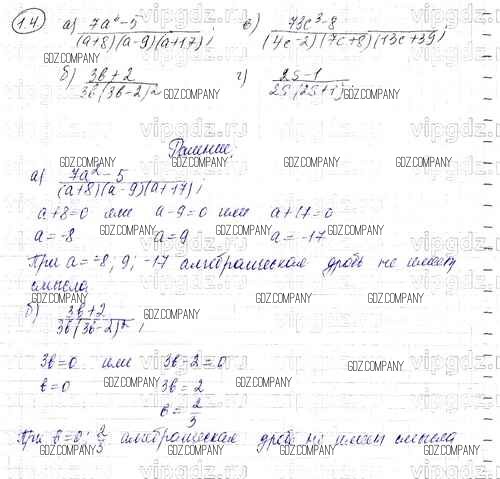 1.4 а) 7a² - 5 / (a+8)(a-9)(a+17) ; в) 73c³-8 / (4c-2)(7c+8)(13c+39) ;
б) 3b+2 / 3b(3b-2)² г) 2s-1 / 2s(2s+1) ;
Решение:
а) 7a² - 5 / (a+8)(a-9)(a+17) ;
a+8=0 или a-9=0 или a+17=0
a=-8 a=9 a=-17
При a=-8; 9; -17 алгебраическая дробь не имеет
смысла
б) 3b+2 / 3b(3b-2)² ;
3b=0 или 3b-2=0
b=0 3b=2
b= 2/3
При b=0; 2/3 алгебраическая дробь не имеет смысла
GDZ.COMPANY
vipgdz.ru